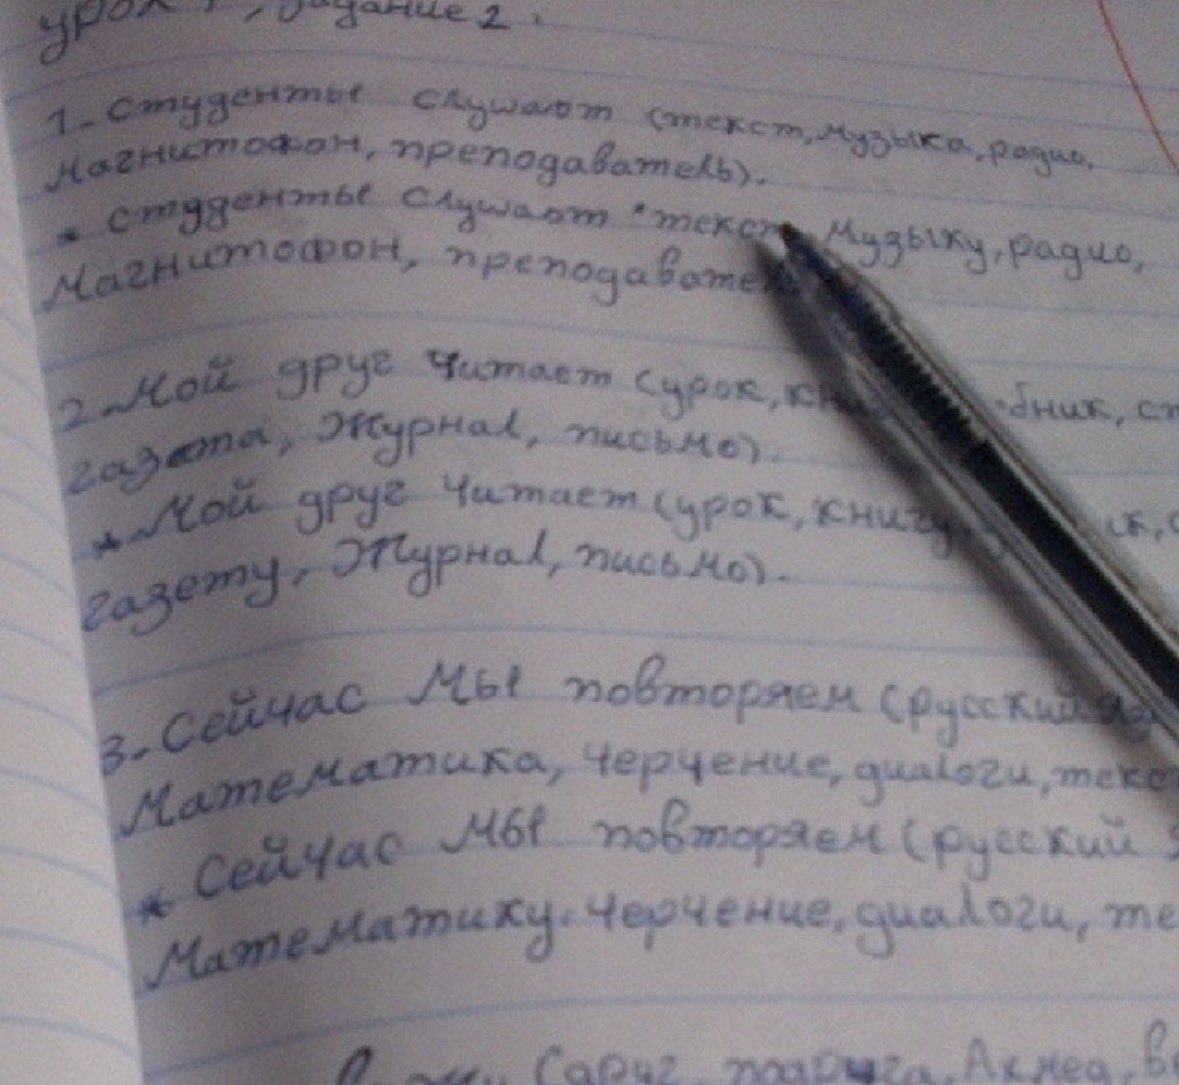 урок , задание 2.
1- Студенты слушают (текст, музыка, радио,
магнитофон, преподаватель).
* Студенты слушают "текст, музыку, радио,
магнитофон,
2- Мой друг читает (урок,
газета, журнал, письмо).
* Мой друг читает (урок, книгу,
газету, журнал, письмо).
3- Сейчас мы повторяем (русский
математика, черчение, диалоги,
* Сейчас мы повторяем (русский
математику. черчение, диалоги,
(друг, подруга, Ахмед,